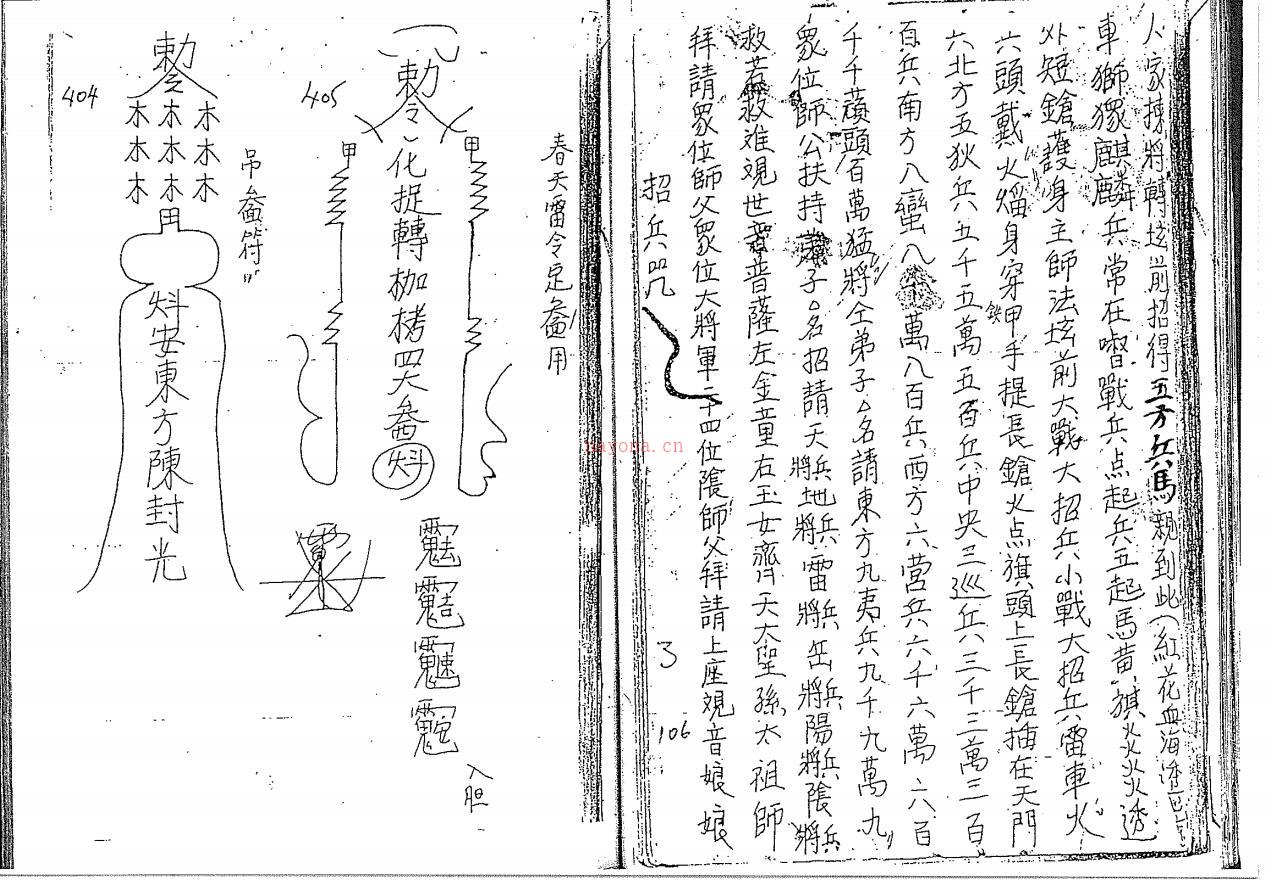 人家揀將轉坛前招得五方兵馬親到此(紅花血海透
車獅猴麒麟兵常在唨戰兵点起兵五起馬黄旗火火火透
外短鎗護身主師法坛前大戰大招兵小戰大招兵雷車火
六頭戴火焰身穿鉄甲手提長鎗火点旗頭上長鎗插在天門
六北方五狄兵五千五萬五百兵中央三巡兵三千三萬三百
百兵南方八蠻八千萬八百兵西方六营兵六千六萬六百
千千蕦頭百萬猛將仝弟子△名請東方九夷兵九千九萬九
衆位師公扶持弟子△名招請天兵將地兵將雷兵將岳兵將陽兵將陰兵將
救苦救难覌世音普薩左金童右玉女齊天大聖孫太祖師
拜請衆位師父衆位大將軍二十四位陰師父拜請上座覌音娘娘
招兵咒
3
106
春天雷令定蠱用
405
勅令
化捉轉枷栲四大蠱
甲
甲
入胆
吊蠱符
404
勅令
木木木
木木木
木木木
田
安東方陳封光
nayona.cn